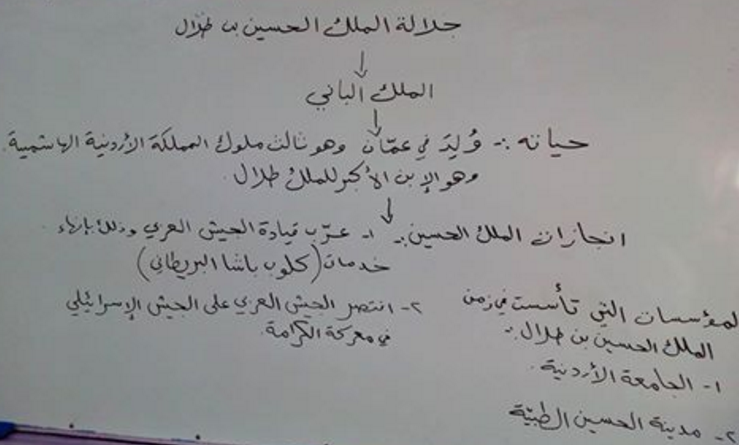 جلالة الملك الحسين بن طلال
الملك الباني
حياته :- وُلِدَ في عمّان وهو ثالث ملوك المملكة الأردنية الهاشمية.
وهو الإبن الأكبر للملك طلال.
انجازات الملك الحسين :- ١- عرّب قيادة الجيش العربي وذلك بإنهاء
خدمات (كلوب باشا البريطاني)
٢- انتصر الجيش العربي على الجيش الإسرائيلي
في معركة الكرامة.
لمؤسسات التي تأسست في زمن
الملك الحسين بن طلال :-
١- الجامعة الأردنية.
٢- مدينة الحسين الطبيّة